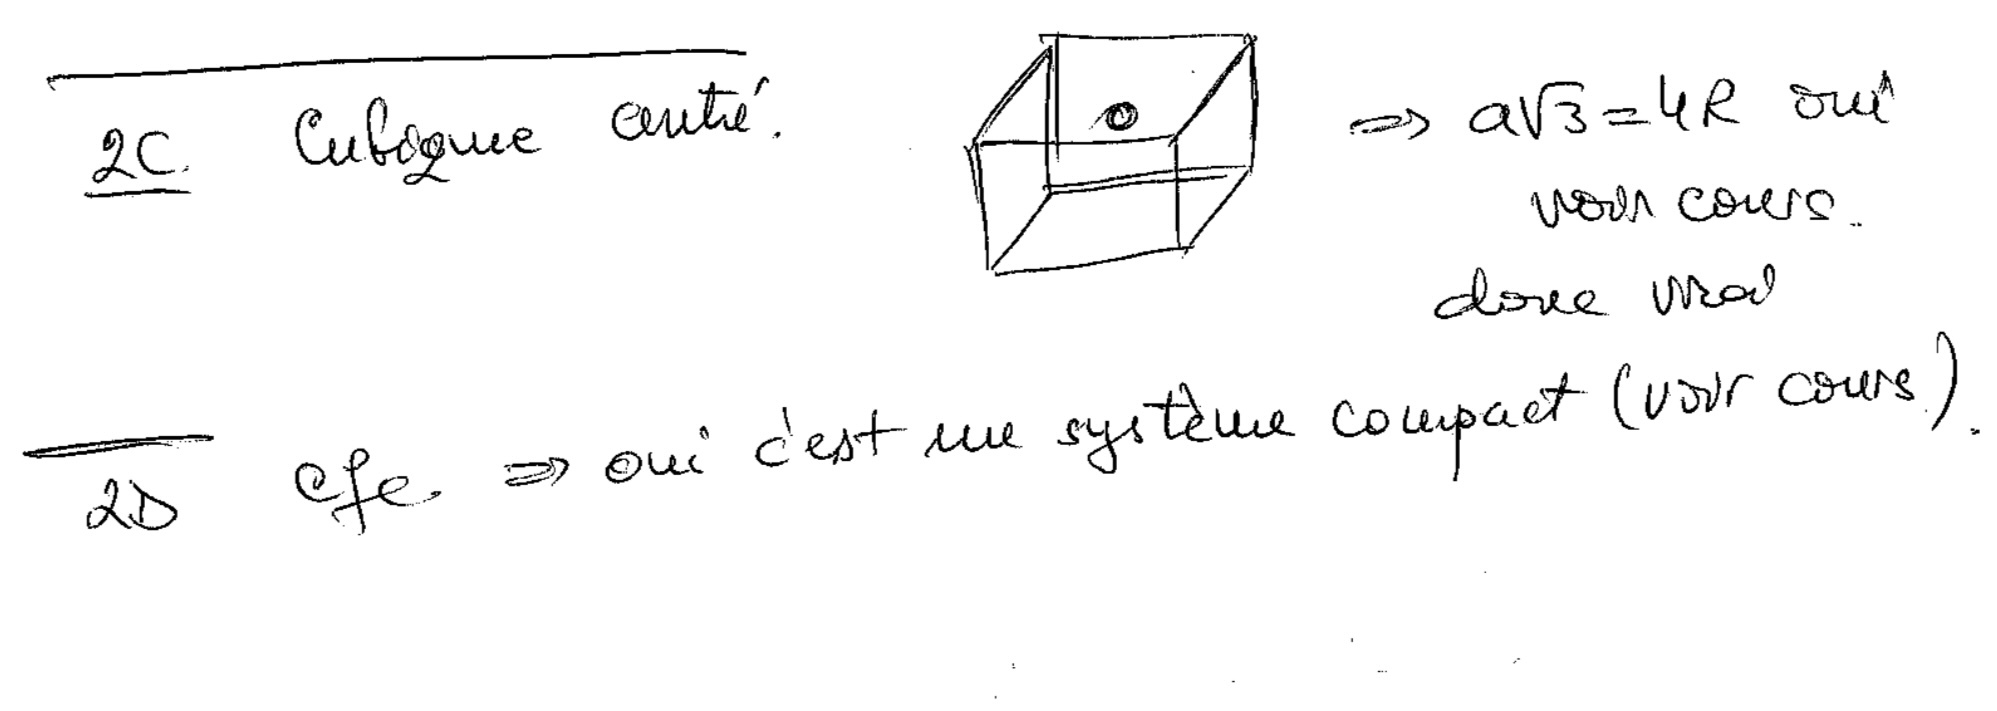 2C. Cubique centré. => a√3 = 4R oui
voir cours.
donc vrai
2D cfc => oui c'est un système compact (voir cours).